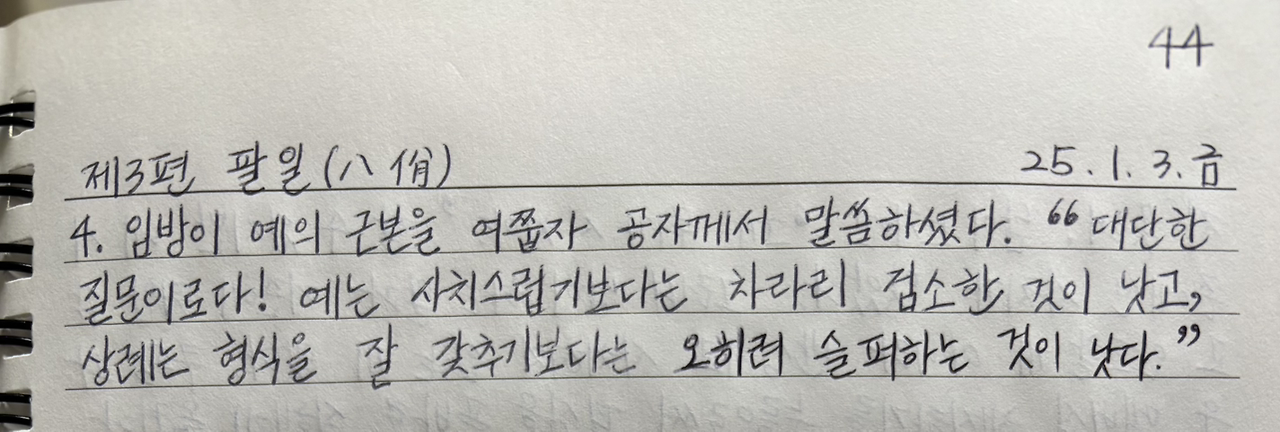 44
제3편 팔일(八佾) 25.1.3.금
4. 임방이 예의 근본을 여쭙자 공자께서 말씀하셨다. “대단한
질문이로다! 예는 사치스럽기보다는 차라리 검소한 것이 낫고,
상례는 형식을 잘 갖추기보다는 오히려 슬퍼하는 것이 낫다.”